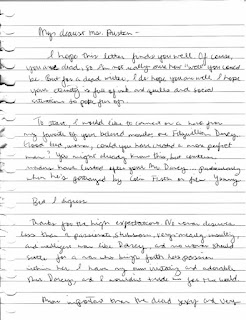 My dearest Ms. Austen -
I hope this letter finds you well. Of course,
you are dead, so I'm not really sure how "well" you could
be. But for a dead writer, I do hope you are well. I hope
your eternity is full of ink and quills and social
situations to poke fun of.
To start, I would like to comment on a hero from
my favorite of your beloved novels: one Fitzwilliam Darcy.
woman, could you have made a more perfect
man? You might already know this, but
women have lusted after your Mr. Darcy
when he's portrayed by Colin Firth
But I digress.
Thanks for the high expectations. No woman deserves
less than a passionate, stubborn, very-ready
and intelligent man like Darcy, and no woman should
settle for a man who hasn't
within her. I have my own and adorable
Mr. Darcy, and I wouldn't trade him for the world.
More important than the